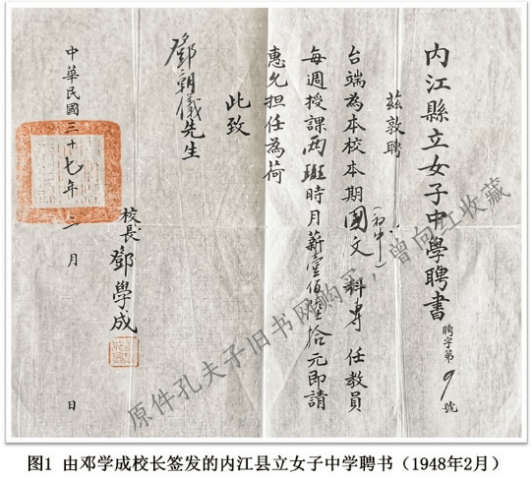 內江縣立女子中學聘書 聘字第9號
茲敦聘
台端為本校本期國文(初中)科專任教員
每週授課两班時月薪壹佰陸拾元即請
惠允担任為荷
此致
鄧朝儀先生
校長 鄧學成
中華民國三十七年二月 日
原件孔夫子旧书网购买，曾向红收藏
图1 由邓学成校长签发的内江县立女子中学聘书（1948年2月）